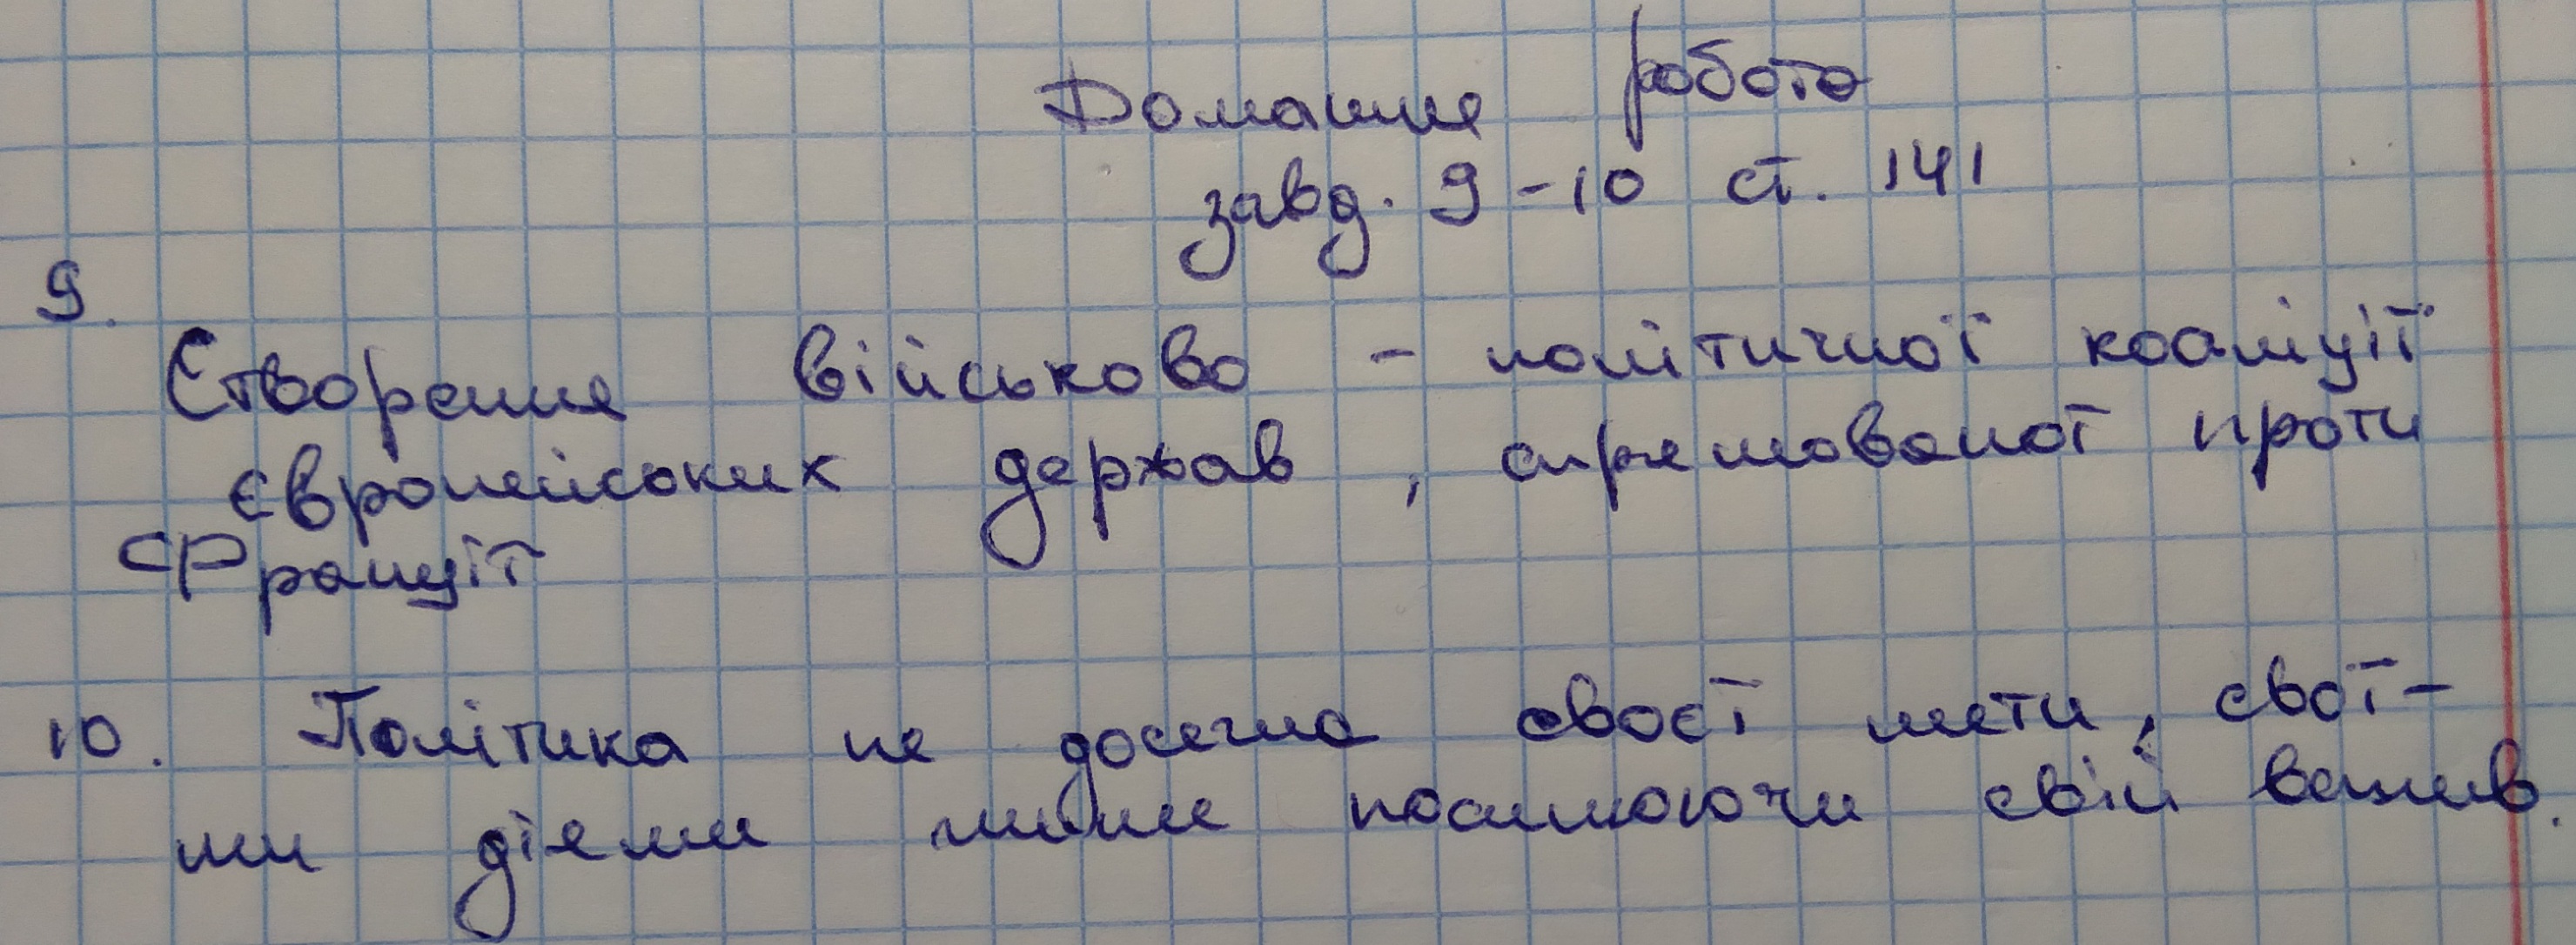 Домашнє робота
завд. 9-10 ст. 141
9.
Створення військово - політичної коаліції
європейських держав, спрямованої проти
Франції
10. Політика не досягла своєї мети, свої-
ми діями лише посилюючи свій вплив.